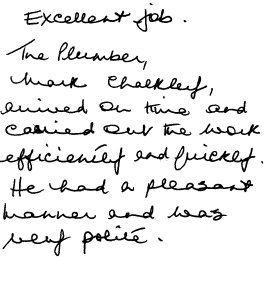 Excellent job.
The Plumber,
Mark Chalkley,
arrived on time and
carried out the work
efficiently and quickly.
He had a pleasant
manner and was
very polite.